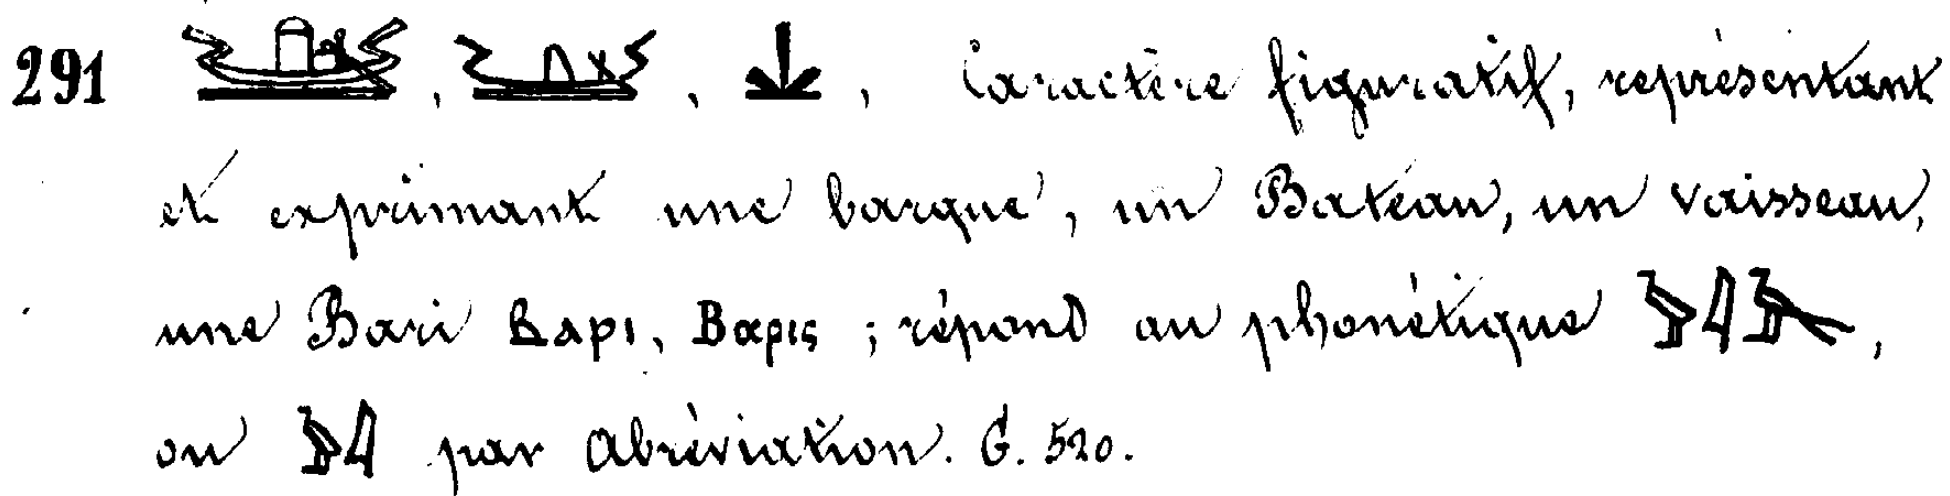 291 , , , Caractère figuratif, représentant
et exprimant une barque, un Bateau, un vaisseau,
une Bari Ⲃⲁⲣⲓ, Βαρις ; répond au phonétique ,
ou par abréviation. G. 520.